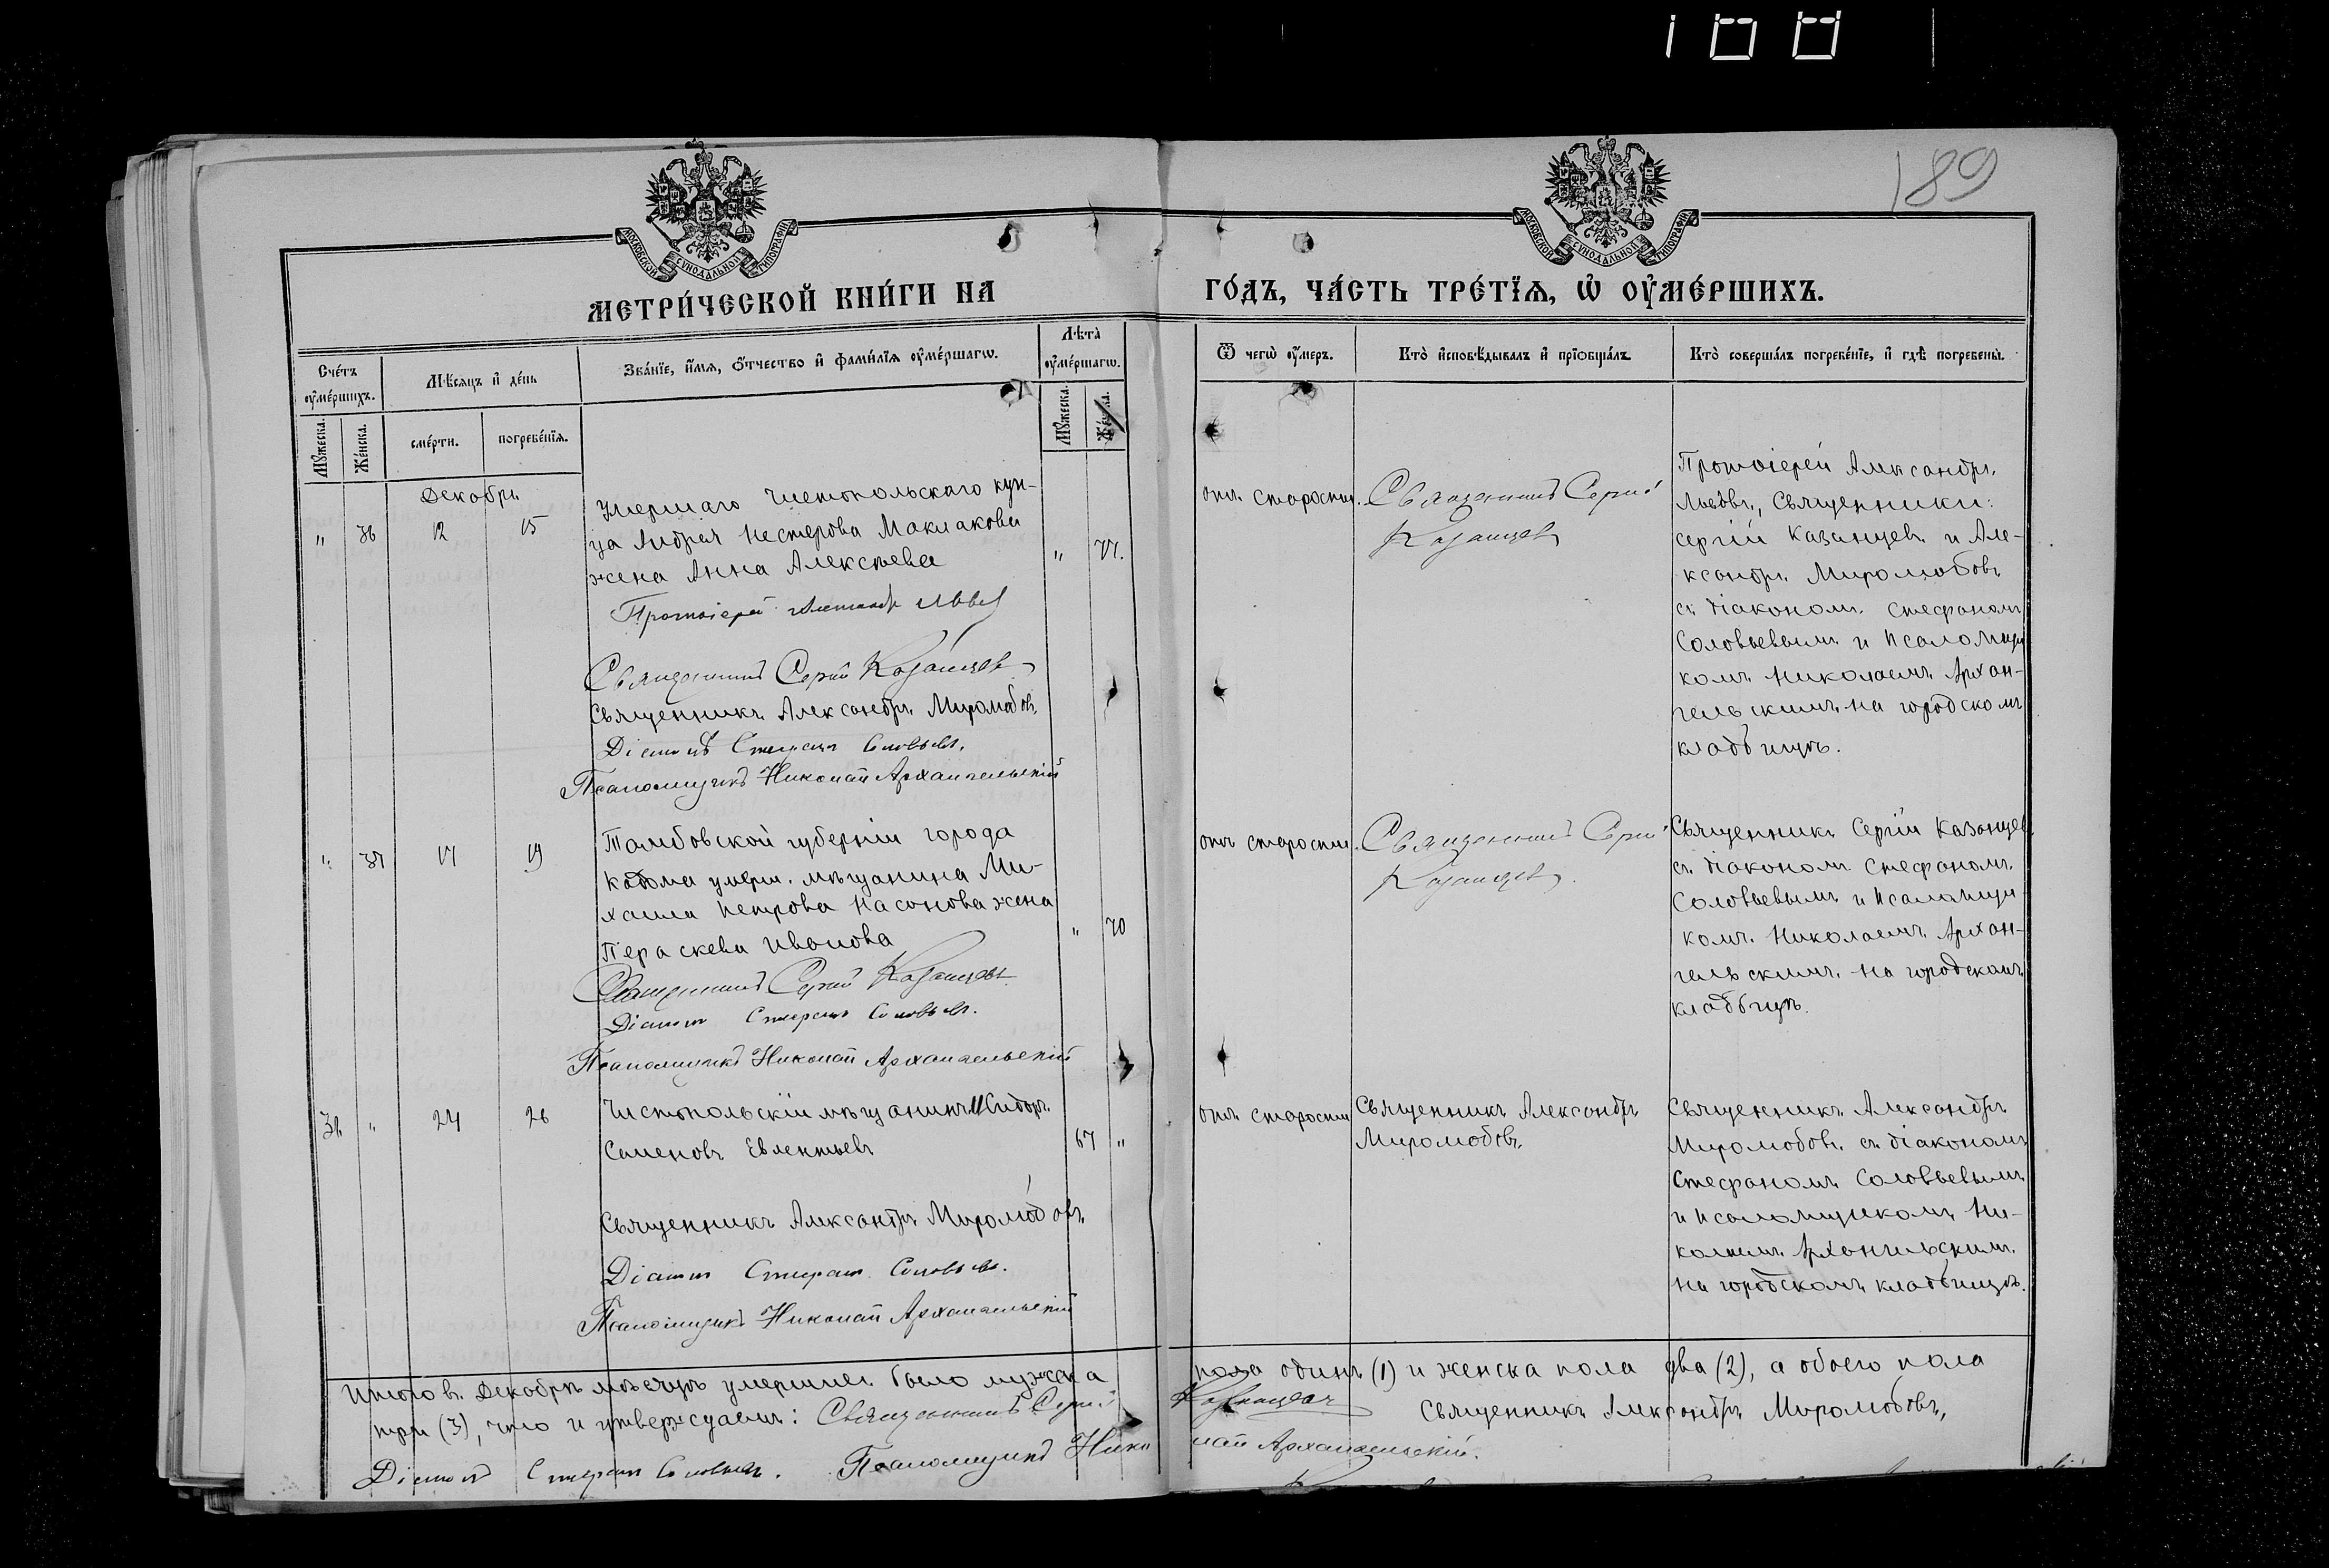 188
189
МОСКОВСКОЙ СѴНОДАЛЬНОЙ ТИПОГРАФІИ
МОСКОВСКОЙ СѴНОДАЛЬНОЙ ТИПОГРАФІИ
МЕТРИ́ЧЕСКОЙ КНИ́ГИ НА ГО́ДЪ, ЧА́СТЬ ТРЕ́ТЇѦ, Ѡ҆ ОУ҆МЕ́РШИХЪ.
Сче́тъ оу҆ме́ршихъ.
Мꙋ́жеска.
Же́нска.
Мѣ́сяцъ и҆ де́нь
сме́рти.
погребе́нїѧ.
Зва́нїе, и҆́мѧ, ѻ҆́тчество и҆ фами́лїѧ оу҆ме́ршагѡ.
Лѣта̀ оу҆ме́ршагѡ.
Мꙋ́жеска.
Же́нска.
Ѿ чегѡ̀ оу҆́меръ.
Кто̀ и҆сповѣ́дывалъ и҆ прїѻбща́лъ
Кто̀ соверша́лъ погребе́нїе, и҆ гдѣ̀ погребены̀.
Декабрь
" 36 12 15
Умершаго Чистопольскаго куп-
ца Андрея Нестерова Маклакова
жена Анна Алексѣева
" 77.
Протоіерей Александръ Львовъ
Священникъ Сергій Казанцевъ
Священникъ Александръ Миролюбовъ
Діаконъ Стефанъ Соловьевъ.
Псаломщикъ Николай Архангельскій
отъ старости.
Священникъ Сергій
Казанцевъ
Протоіерей Александръ
Львовъ, Священники:
Сергій Казанцевъ и Але-
ксандръ Миролюбовъ
съ діакономъ Стефаномъ
Соловьевымъ и псаломщи
комъ Николаемъ Архан-
гельскимъ на городскомъ
кладбищѣ.
" 37 17 19
Тамбовской губерніи города
Кадома умерш. мѣщанина Ми-
хаила Петрова Насонова жена
Параскева Иванова
" 70
Священникъ Сергій Казанцевъ
Діаконъ Стефанъ Соловьевъ.
Псаломщикъ Николай Архангельскій
отъ старости.
Священникъ Сергій
Казанцевъ.
Священникъ Сергій Казанцевъ
съ діакономъ Стефаномъ
Соловьевымъ и псаломщи
комъ Николаемъ Архан-
гельскимъ на городскомъ
кладбищѣ.
36 " 24 26
Чистопольскій мѣщанинъ Сидоръ
Семеновъ Евлентьевъ
67 "
Священникъ Александръ Миролюбовъ
Діаконъ Стефанъ Соловьевъ.
Псаломщикъ Николай Архангельскій
отъ старости
Священникъ Александръ
Миролюбовъ.
Священникъ Александръ
Миролюбовъ съ діакономъ
Стефаномъ Соловьевымъ
и псаломщикомъ Ни-
колаемъ Архангельскимъ
на городскомъ кладбищѣ.
Итого въ Декабрѣ мѣсяцѣ умершихъ было мужска пола одинъ (1) и женска пола два (2), а обоего пола
три (3), что и утверждаемъ: Священникъ Сергій Казанцевъ Священникъ Александръ Миролюбовъ,
Діаконъ Стефанъ Соловьевъ. Псаломщикъ Николай Архангельскій.